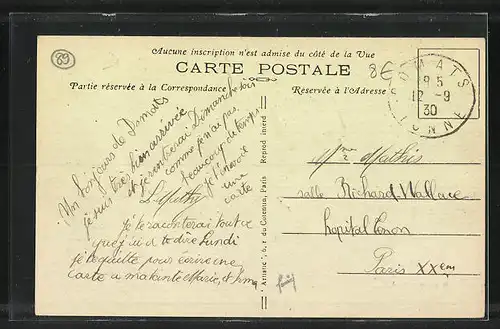 89
Aucune inscription n'est admise du côté de la Vue
CARTE POSTALE
Partie réservée à la Correspondance
Réservée à l'Adresse
8€
DOMATS
9 5
12 - 9
30
YONNE
Un bonjour de Domats
je suis très bien arrivée
et je rentrerai Dimanche soir
comme je n'ai pas
beaucoup de temps
je t'envoie
une
carte
je te raconterai tout ce
que j'ai à te dire Lundi
je te quitte pour écrire une
carte a ma tante Marie, et
"Artistic", 6, r. du Corenus, Paris
Reprod interd
Mme Mathis
salle Richard Wallace
hopital Tenon
Paris XXem